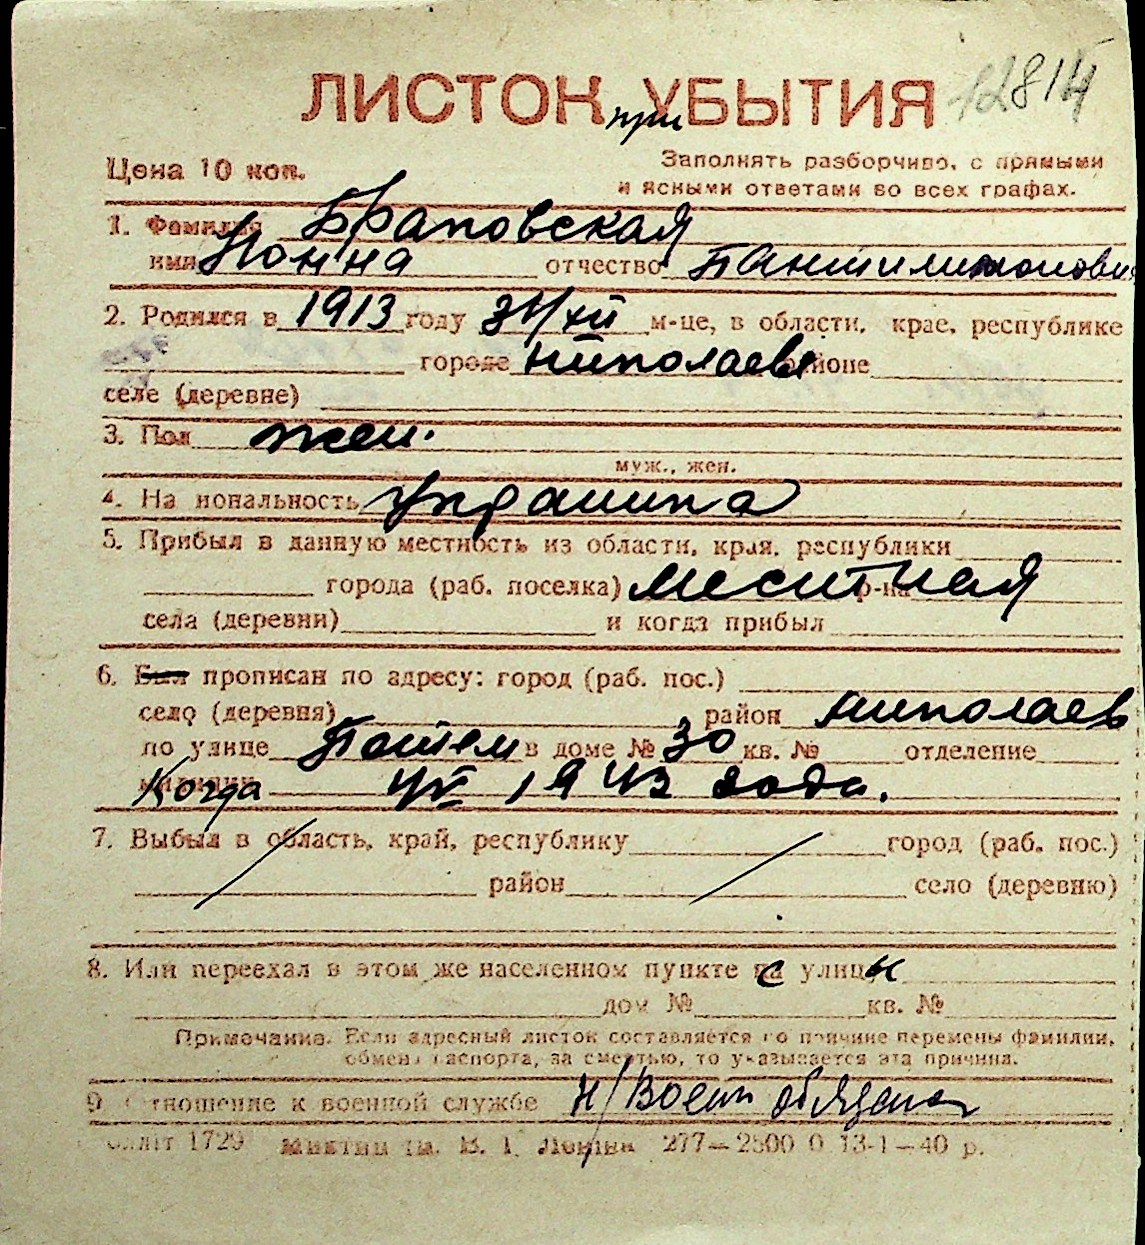 12814
ЛИСТОК при УБЫТИЯ
Цена 10 коп.
Заполнять разборчиво, с прямыми
и ясными ответами во всех графах.
1. Фамилия Браповская
имя Нонна отчество
2. Родился в 1913 году 31/XII м-це, в области, крае, республике
городе Николаев районе
селе (деревне)
3. Пол жен.
муж., жен.
4. Национальность украинка
5. Прибыл в данную местность из области, края, республики
города (раб. поселка) местная р-на
села (деревни) и когда прибыл
6. Был прописан по адресу: город (раб. пос.)
село (деревня) район Николаев
по улице в доме № 30 кв. № отделение
милиции Когда 4/V 1943 года.
7. Выбыл в область, край, республику город (раб. пос.)
район село (деревню)
8. Или переехал в этом же населенном пункте с улицы
дом № кв. №
Примечание. Если адресный листок составляется по причине перемены фамилии,
обмена паспорта, за смертью, то указывается эта причина.
9 Отношение к военной службе н/военнообязанная
1729 277—2500 0 13-1—40 р.